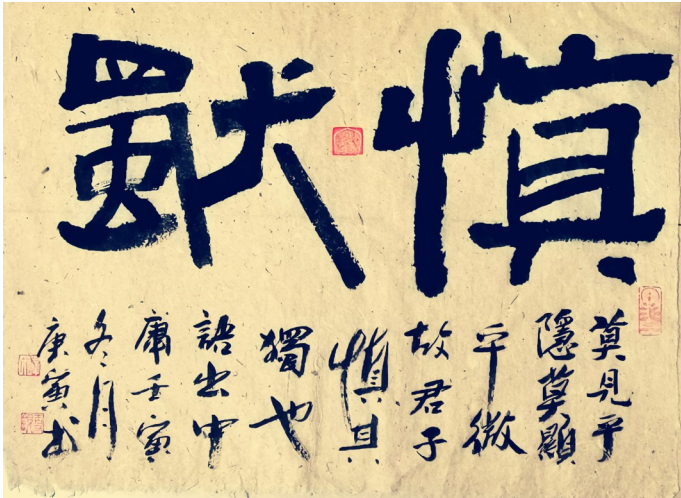 慎獨
莫見乎
隱莫顯
乎微
故君子
慎其
獨也
語出中
庸壬寅
冬月
庚寅书